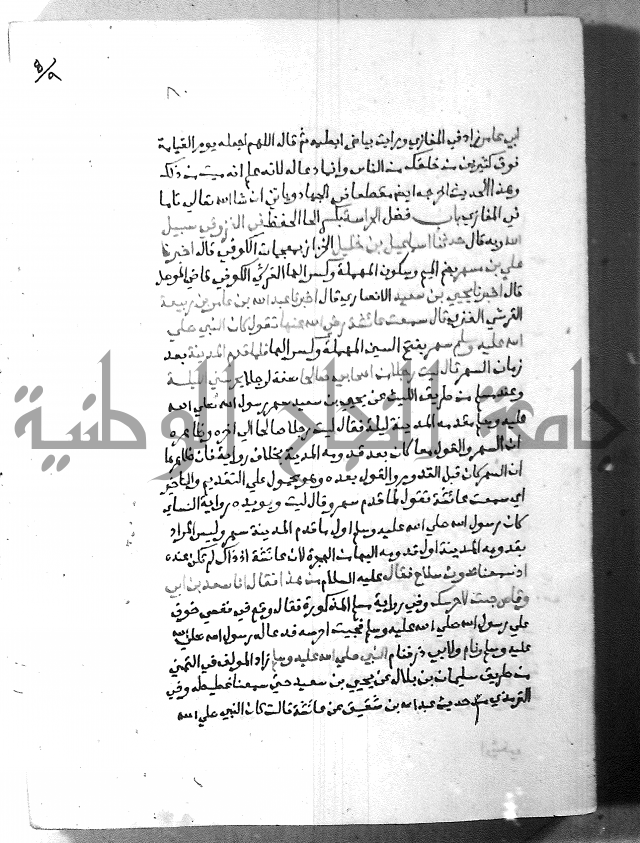 ٨٠
ابي عامر زاد في المغازي ورايت بياض ابطيه ثم قال اللهم اجعله يوم القيامة
فوق كثير من خلقك من الناس وانما دعا له لانه علم انه ميت من ذلك
وهذا الحديث اخرجه ايضا مقطعا في الجهاد وياتي ان شا الله تعالي تاما
في المغازي باب فضل الحراسة بكسر الحا الحفظ في الغزو في سبيل
الله وبه قال حدثنا اسماعيل بن خليل الخزاز بمعجمات الكوفي قال اخبرنا
علي بن مسهر بضم الميم وسكون المهملة وكسر الها القرشي الكوفي قاضي الموصل
قال اخبرنا يحيي بن سعيد الانصاري قال اخبرنا عبد الله بن عامر بن ربيعة
القرشي العنزي قال سمعت عائشة رضي الله عنها تقول كان النبي صلي
الله عليه وسلم سهر بفتح السين المهملة وكسر الها فلما قدم المدينة بعد
زمان السهر قال ليت رجلا من اصحابي صالحا صفة لرجلا يحرسني الليلة
وعند مسلم من طريق الليث عن يحيي بن سعيد سهر رسول الله صلي الله
عليه وسلم مقدمه المدينة ليلة فقال ليت رجلا صالحا الي اخره وظاهره
ان السهر والقول معا كان بعد قدومه المدينة بخلاف رواية فان ظاهرها
ان السهر كان قبل القدوم والقول بعده وهو محمول علي التقديم والتاخير
اي سمعت عائشة تقول لما قدم سهر وقال ليت ويويده رواية النساي
كان رسول الله صلي الله عليه وسلم اول ما قدم المدينة سهر وليس المراد
بقدومه المدينة اول قدومه اليها من الهجرة لان عائشة اذ ذاك لم تكن عنده
اذ سمعنا صوت سلاح فقال عليه السلام من هذا فقال انا سعد بن ابي
وقاص جيت لاحرسك وفي رواية مسلم المذكورة فقال وقع في نفسي خوف
علي رسول الله صلي الله عليه وسلم فجيت احرسه فدعا له رسول الله صلي الله
عليه وسلم ونام ولابي ذر فنام النبي صلي الله عليه وسلم زاد المولف في التمني
من طريق سليمان بن بلال عن يحيي بن سعيد حتي سمعنا غطيطه وفي
الترمذي من حديث عبد الله بن شقيق عن عائشة قالت كان النبي صلي الله
جامعة النجاح الوطنية